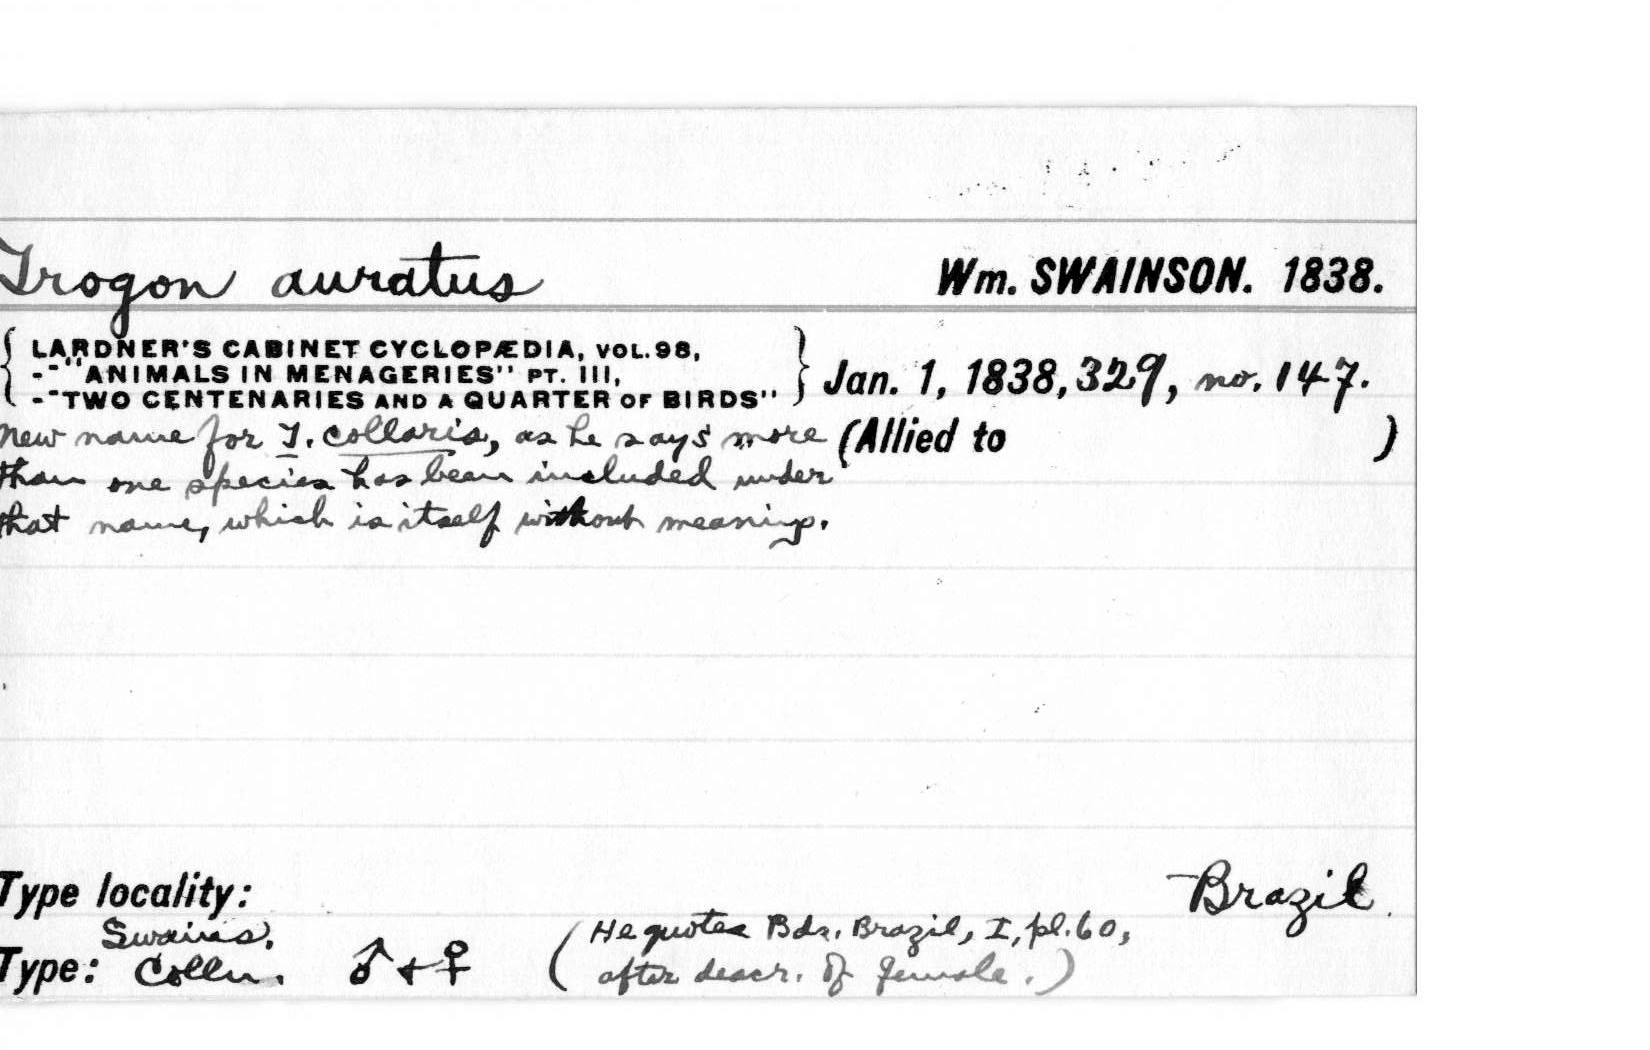 Trogon auratus Wm. SWAINSON. 1838.
LARDNER'S CABINET CYCLOPÆDIA, VOL. 98,
-"ANIMALS IN MENAGERIES" PT. III,
-"TWO CENTENARIES AND A QUARTER OF BIRDS"
Jan. 1, 1838, 329, no. 147.
New name for T. collaris, as he says more (Allied to )
than one species has been included under
that name, which is itself without meaning.
Type locality: Brazil.
Type: Swains. Colln. ♂ + ♀
(He quotes Bds. Brazil, I, pl. 60,
after descr. of female.)